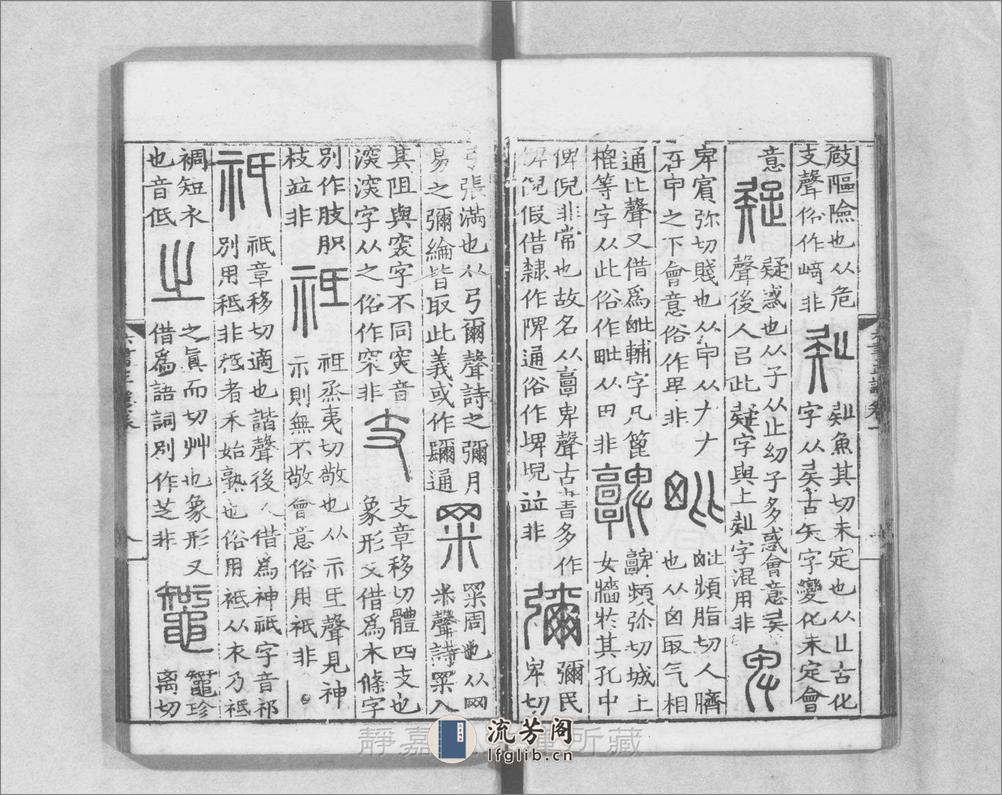 㩻嶇險也从危
支聲俗作﨑非
魚其切未定也从止古化
字从矣古矢字變化未定會
意
疑
疑惑也从子从止幼子多惑會意矣
聲後人㠯此疑字與上字混用非
卑
卑賓弥切賤也从甲从𠂇𠂇
在甲之下會意俗作卑非
毗
毗頻脂切人臍
也从囟取气相
通比聲又借爲毗輔字凡篦
榌等字从此俗作毗从田非
𩫫頻弥切城上
女牆於其孔中
俾倪非常也故名从𩫖卑聲古書多作
俾倪假借隸作陴通俗作埤堄竝非
彌
彌民
卑切
弓張滿也从弓爾聲詩之彌月
易之彌綸皆取此義或作瓕通
罙
罙周也从网
米聲詩罙入
其阻與突字不同突音
深深字从之俗作罙非
支
支章移切體四支也
象形又借爲木條字
別作肢胑
枝竝非
祗
祗烝夷切敬也从示氐聲見神
示則無不敬會意俗用祇非
祇
祇章移切適也諧聲後人借爲神祇字音祁
別用秖非秖者禾始熟也俗用衹从衣乃衹
裯短衣
也音低
之
之眞而切艸也象形又
借爲語詞別作芝非
鼅
鼅珍
离切
靜嘉堂文庫所藏
流芳阁
lfglib.cn